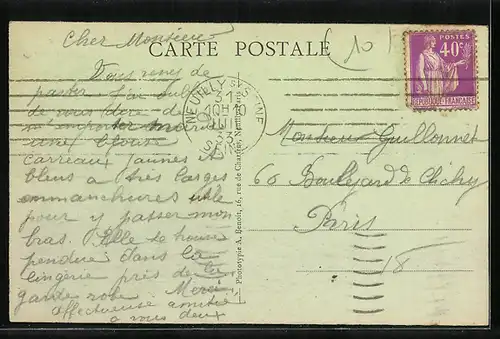 Cher Monsieur
CARTE POSTALE
(10
POSTES
40c
REPUBLIQUE FRANCAISE
Vous venez de
NEUILLY S SEINE
31
de vous dire de
une blouse
carreaux jaunes et
bleus a très larges
emmanchures utile
pour y passer mon
bras. Elle se trouve
pendue dans la
lingerie près de la
garde robe. Merci
affectueuse amitié
a vous deux
Phototypie A. Benoit, 16, rue de Chartres, Neuilly
Monsieur Guillonnet
60 Boulevard de Clichy
Paris
18